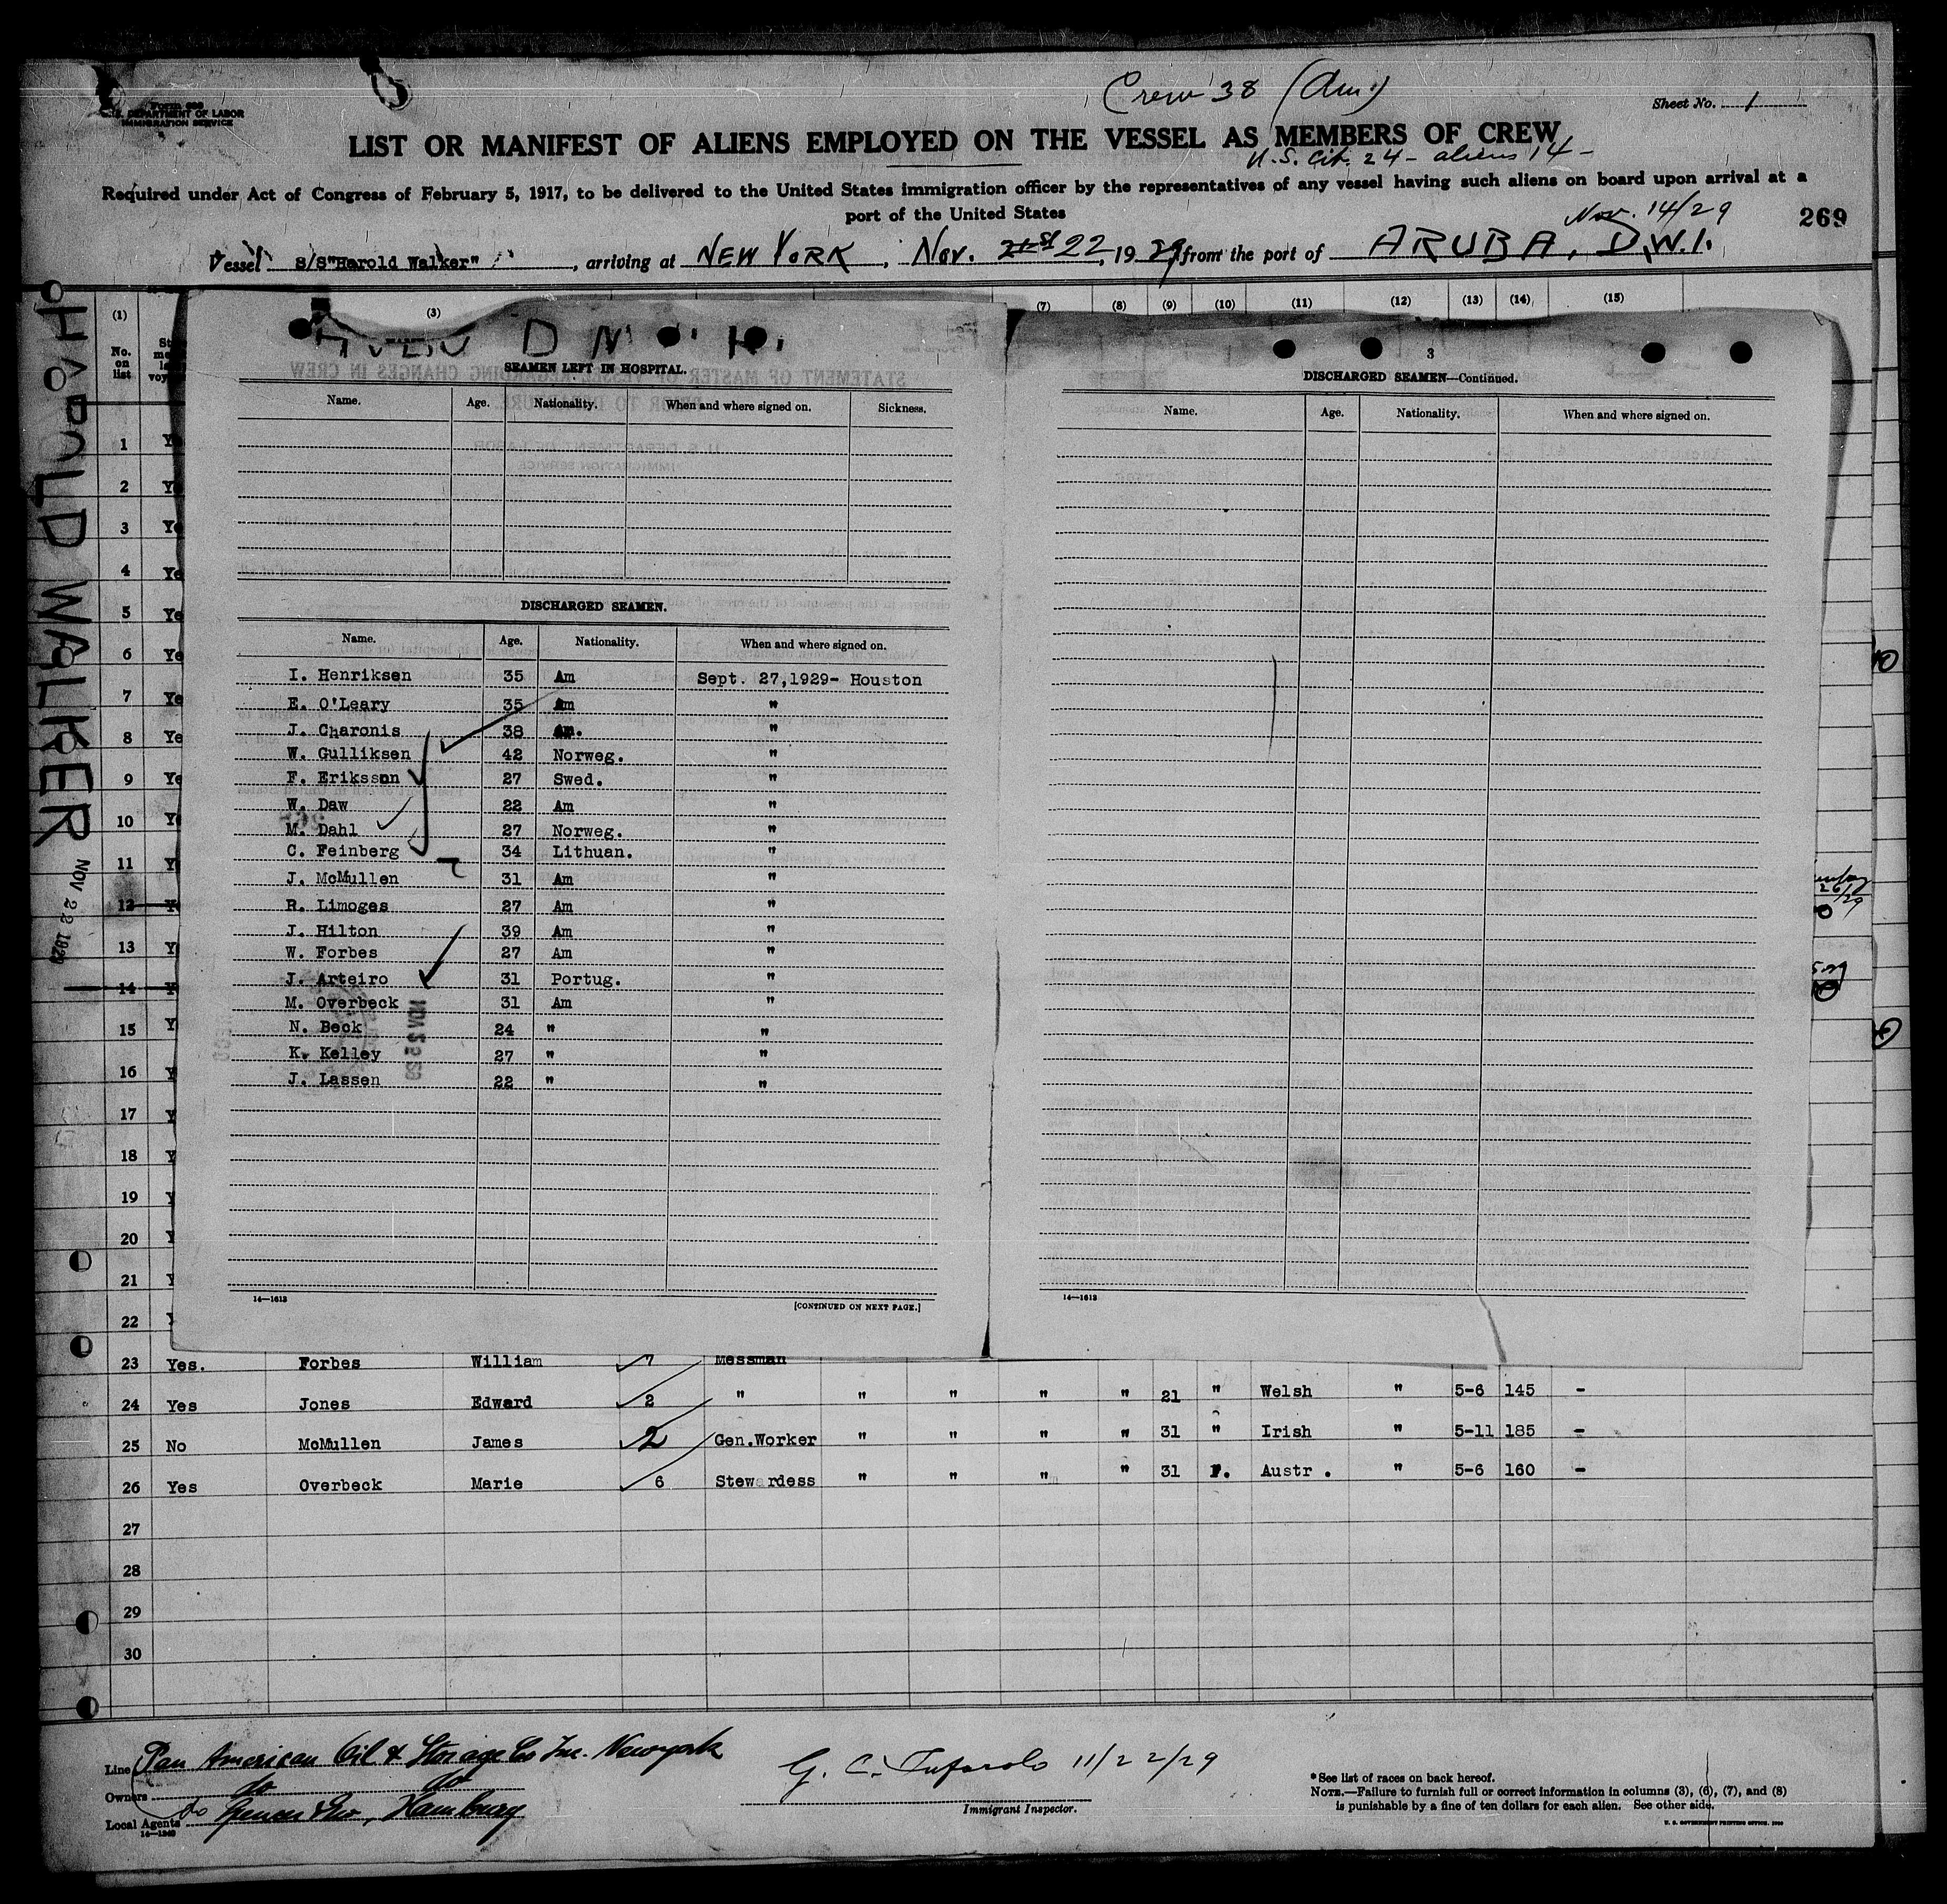 Crew 38 (Am.)
Form 689
U. S. DEPARTMENT OF LABOR
IMMIGRATION SERVICE
Sheet No. 1
LIST OR MANIFEST OF ALIENS EMPLOYED ON THE VESSEL AS MEMBERS OF CREW
U.S. Cit. 24 - aliens 14 -
Required under Act of Congress of February 5, 1917, to be delivered to the United States immigration officer by the representatives of any vessel having such aliens on board upon arrival at a
port of the United States
Nov. 14/29
269
Vessel S/S"Harold Walker", arriving at NEW YORK, Nov. 21st 22, 1929 from the port of ARUBA, D.W.I.
HAROLD WALKER
NOV 22 1929
(1) (3) (7) (8) (9) (10) (11) (12) (13) (14) (15)
No. on list
SEAMEN LEFT IN HOSPITAL.
Name. Age. Nationality. When and where signed on. Sickness.
DISCHARGED SEAMEN.
Name. Age. Nationality. When and where signed on.
I. Henriksen 35 Am Sept. 27,1929- Houston
E. O'Leary 35 Am "
J. Charonis 38 Am. "
W. Gulliksen 42 Norweg. "
F. Eriksson 27 Swed. "
W. Daw 22 Am "
M. Dahl 27 Norweg. "
C. Feinberg 34 Lithuan. "
J. McMullen 31 Am "
R. Limoges 27 Am "
J. Hilton 39 Am "
W. Forbes 27 Am "
J. Arteiro 31 Portug. "
M. Overbeck 31 Am "
N. Beck 24 " "
K. Kelley 27 " "
J. Lassen 22 " "
14—1613
[CONTINUED ON NEXT PAGE.]
3
DISCHARGED SEAMEN—Continued.
Name. Age. Nationality. When and where signed on.
14—1613
1 Ye
2 Ye
3 Ye
4 Ye
5 Ye
6 Ye
7 Ye
8 Ye
9 Ye
10 Ye
11 Y
12 Y
13 Y
14 Y
15 Y
16 Y
17 Y
18 Y
19 Y
20 Y
21 Y
22
23 Yes. Forbes William 7 Messman
24 Yes Jones Edward 2 " " " " " 21 " Welsh " 5-6 145 -
25 No McMullen James 2 Gen.Worker " " " " 31 " Irish " 5-11 185 -
26 Yes Overbeck Marie 6 Stewardess " " " " 31 F. Austr. " 5-6 160 -
27
28
29
30
Line Pan American Oil & Storage Co Inc. Newyork
Owners do do
Local Agents do Hamburg
14—1240
G. C. 11/22/29
Immigrant Inspector.
*See list of races on back hereof.
NOTE.—Failure to furnish full or correct information in columns (3), (6), (7), and (8)
is punishable by a fine of ten dollars for each alien. See other side.
U. S. GOVERNMENT PRINTING OFFICE.